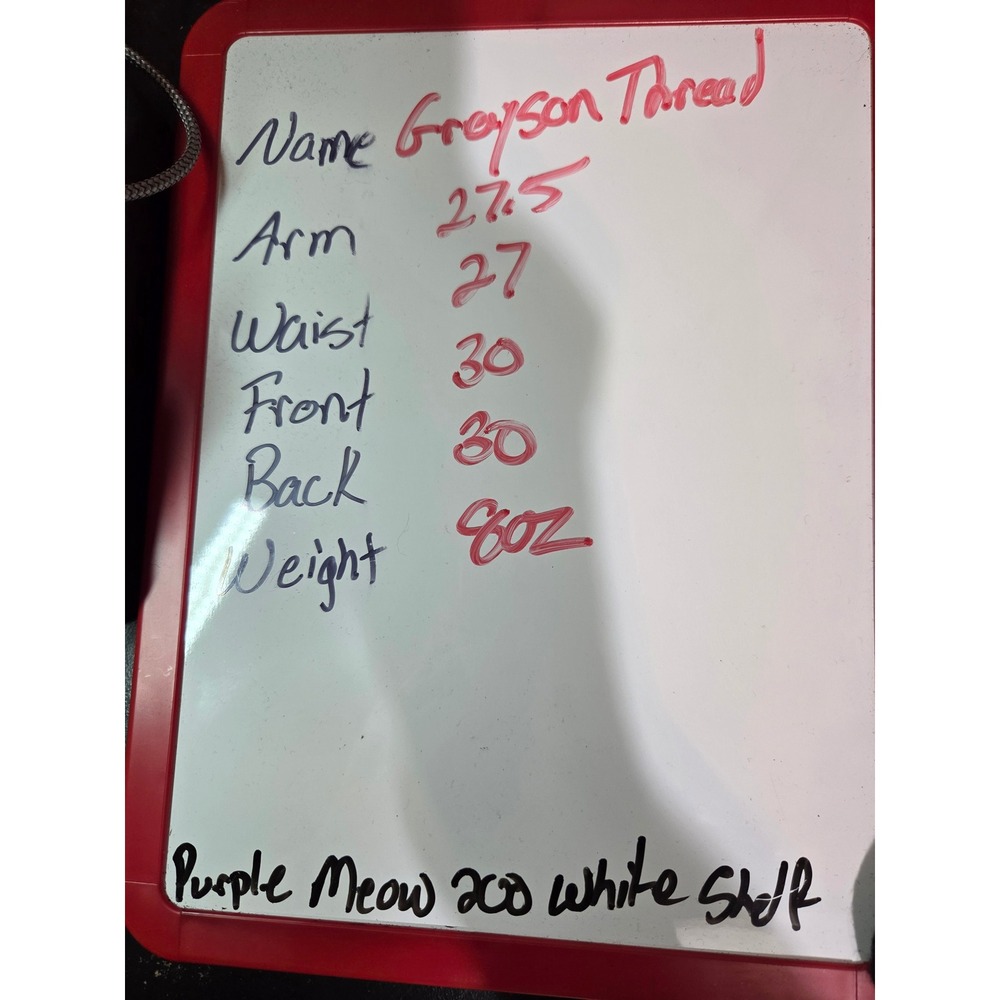 Name Greyson Thread
Arm 27.5
Waist 27
Front 30
Back 30
Weight 8oz
Purple Meow 200 White Shelf